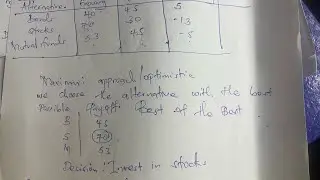 Alternative
Bonds 40 45 5
Stocks 70 30 -13
Mutual funds 53 45 -5
Maximax approach/optimistic
we choose the alternative with the best
Possible Payoff. Best of the Best.
B 45
S 70
M 53
Decision: Invest in stocks